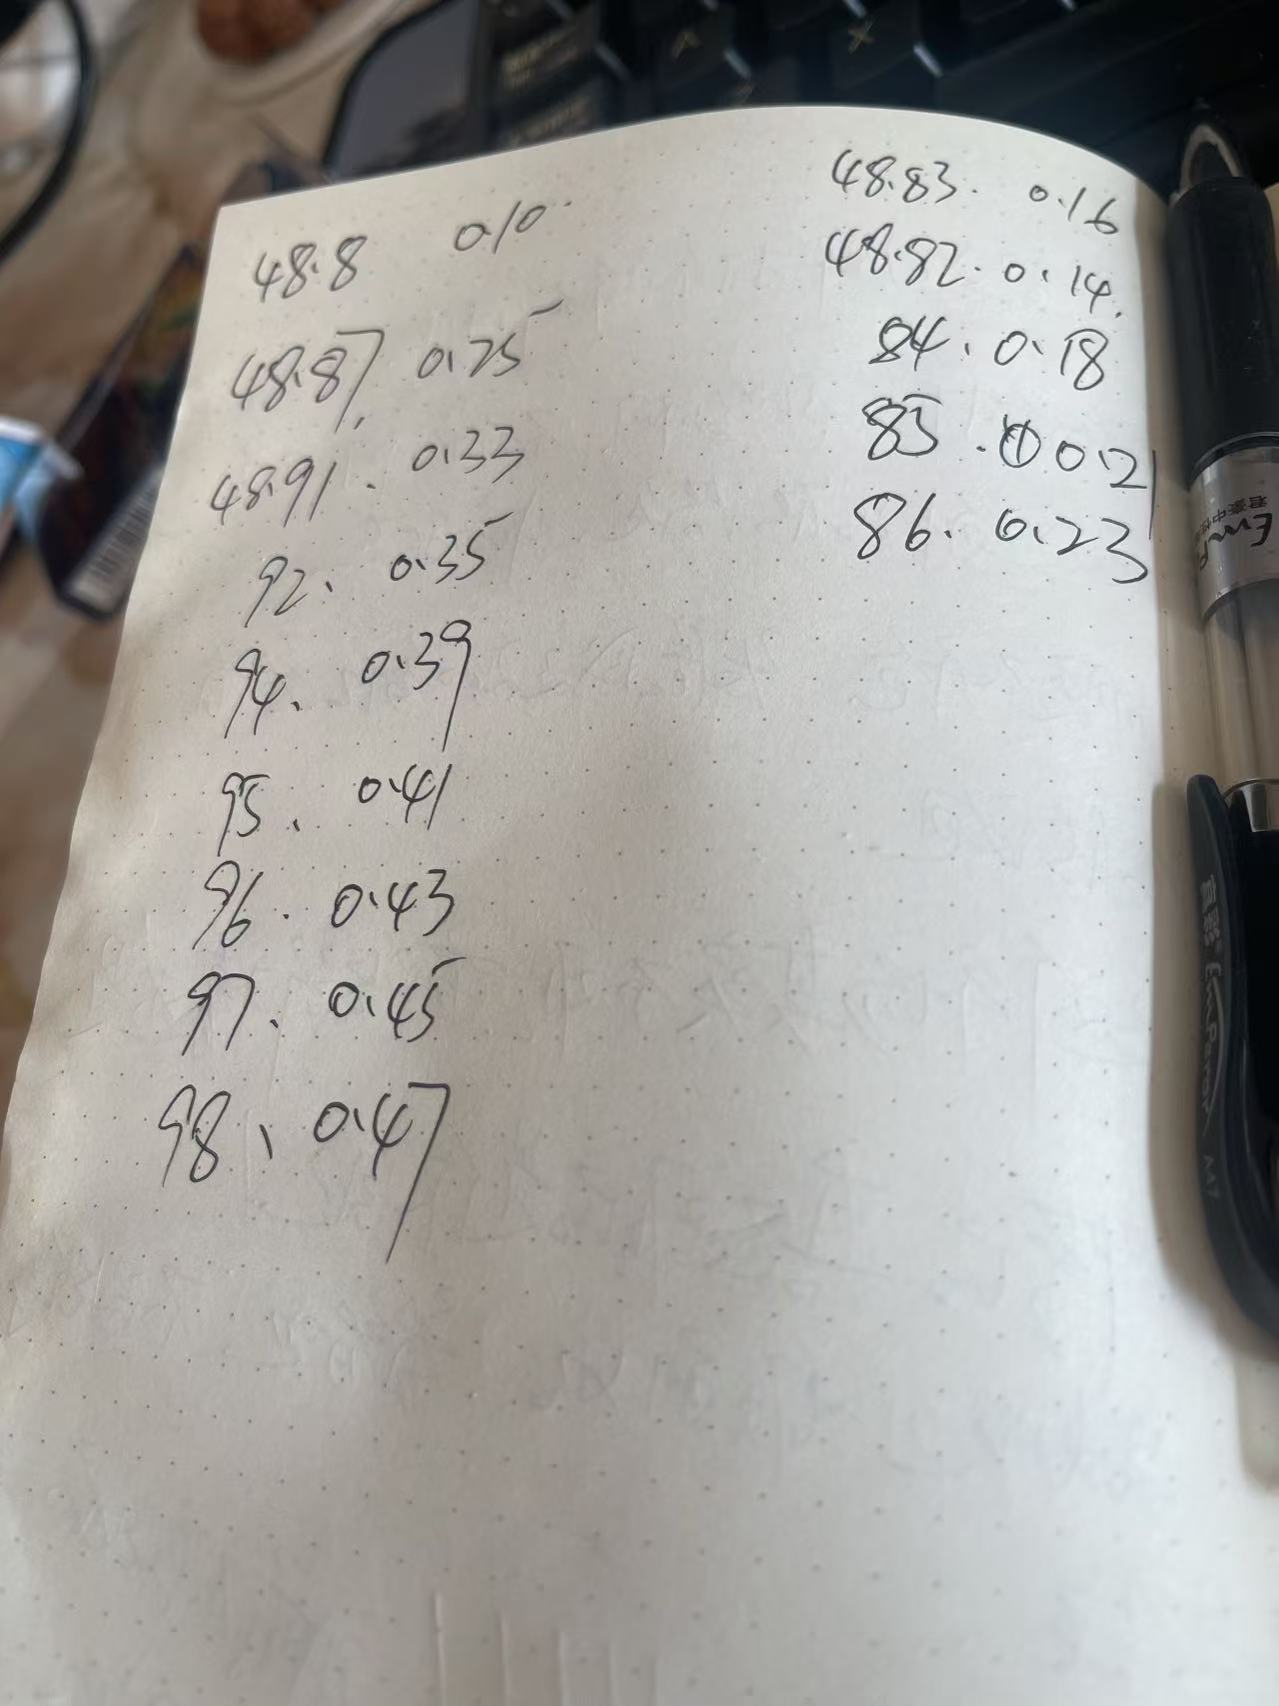 48.8 0.10
48.87, 0.25
48.91. 0.33
92、 0.35
94、 0.39
95、 0.41
96. 0.43
97、 0.45
98、 0.47
48.83. 0.16
48.82. 0.14.
84. 0.18
85. 0.21
86. 0.23